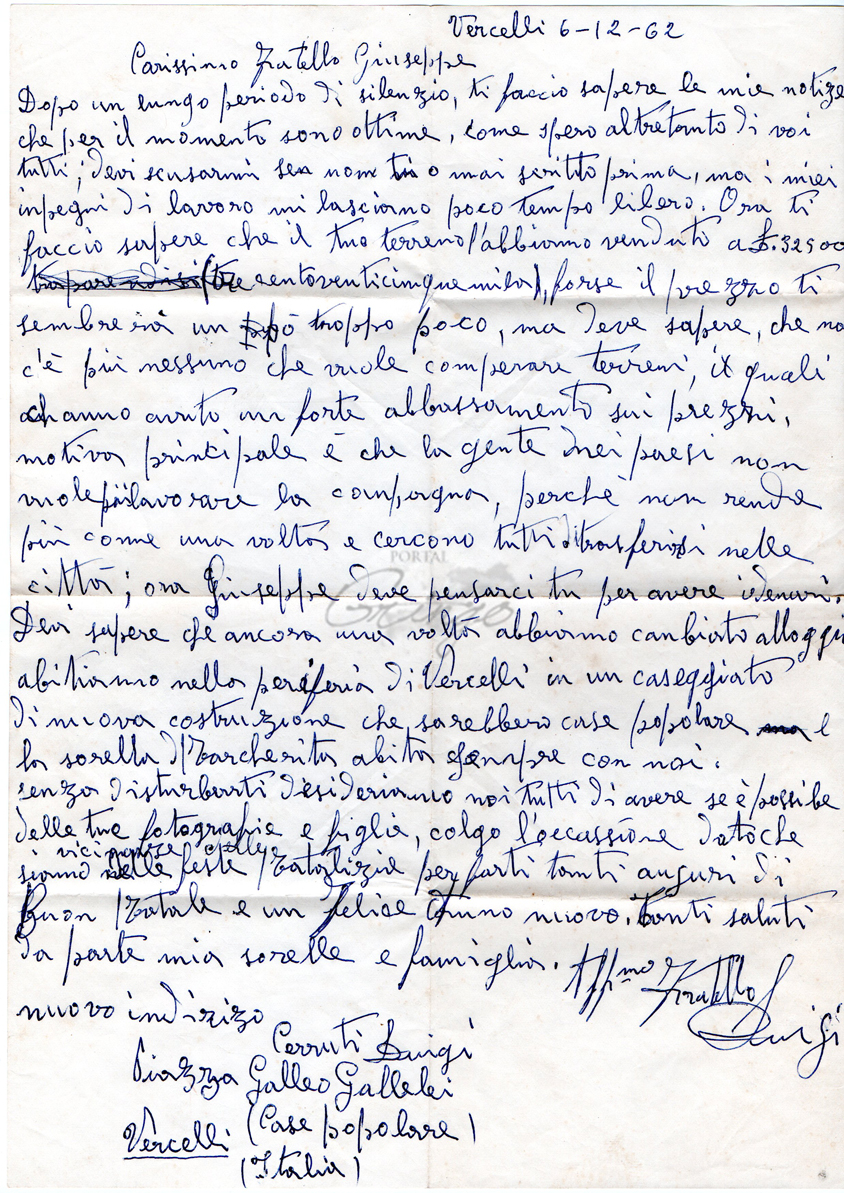 Vercelli 6-12-62
Carissimo Fratello Giuseppe
Dopo un lungo periodo di silenzio, ti faccio sapere le mie notize
che per il momento sono ottime, come spero altretanto di voi
tutti; devi scusarmi se non ti o mai scritto prima, ma i miei
inpegni di lavoro mi lasciano poco tempo libero. Ora ti
faccio sapere che il tuo terreno l'abbiamo venduto a £.32500
(tre centoventicinquemila), forse il prezzo ti
sembrerà un pò troppo poco, ma deve sapere, che no
c'è più nessuno che vuole comperare terreni, i quali
hanno avuto un forte abbassamento sui prezzi,
motivo principale è che la gente nei paesi non
vuole più lavorare la campagna, perchè non rende
più come una volta e cercono tutti di trasferirsi nelle
città; ora Giuseppe deve pensarci tu per avere idenari.
PORTAL
Devi sapere che ancora una volta abbiamo canbiato alloggi
abitiamo nella periferia di Vercelli in un caseggiato
di nuova costruzione che sarebbero case popolare e
la sorella Margherita abita sempre con noi.
senza disturbarti desideriamo noi tutti di avere se è possibe
delle tue fotografie e figlie, colgo l'occassione datoche
vicinanze delle
siamo nelle feste Natalizie per farti tanti auguri di
Buon Natale e un felice Anno nuovo. Tanti saluti
da parte mia sorelle e famiglia.
Aff.mo Fratello
Luigi
nuovo indirizo
Cerruti Luigi
Piazza Galleo Gallelei
(Case popolare)
Vercelli
(Italia)